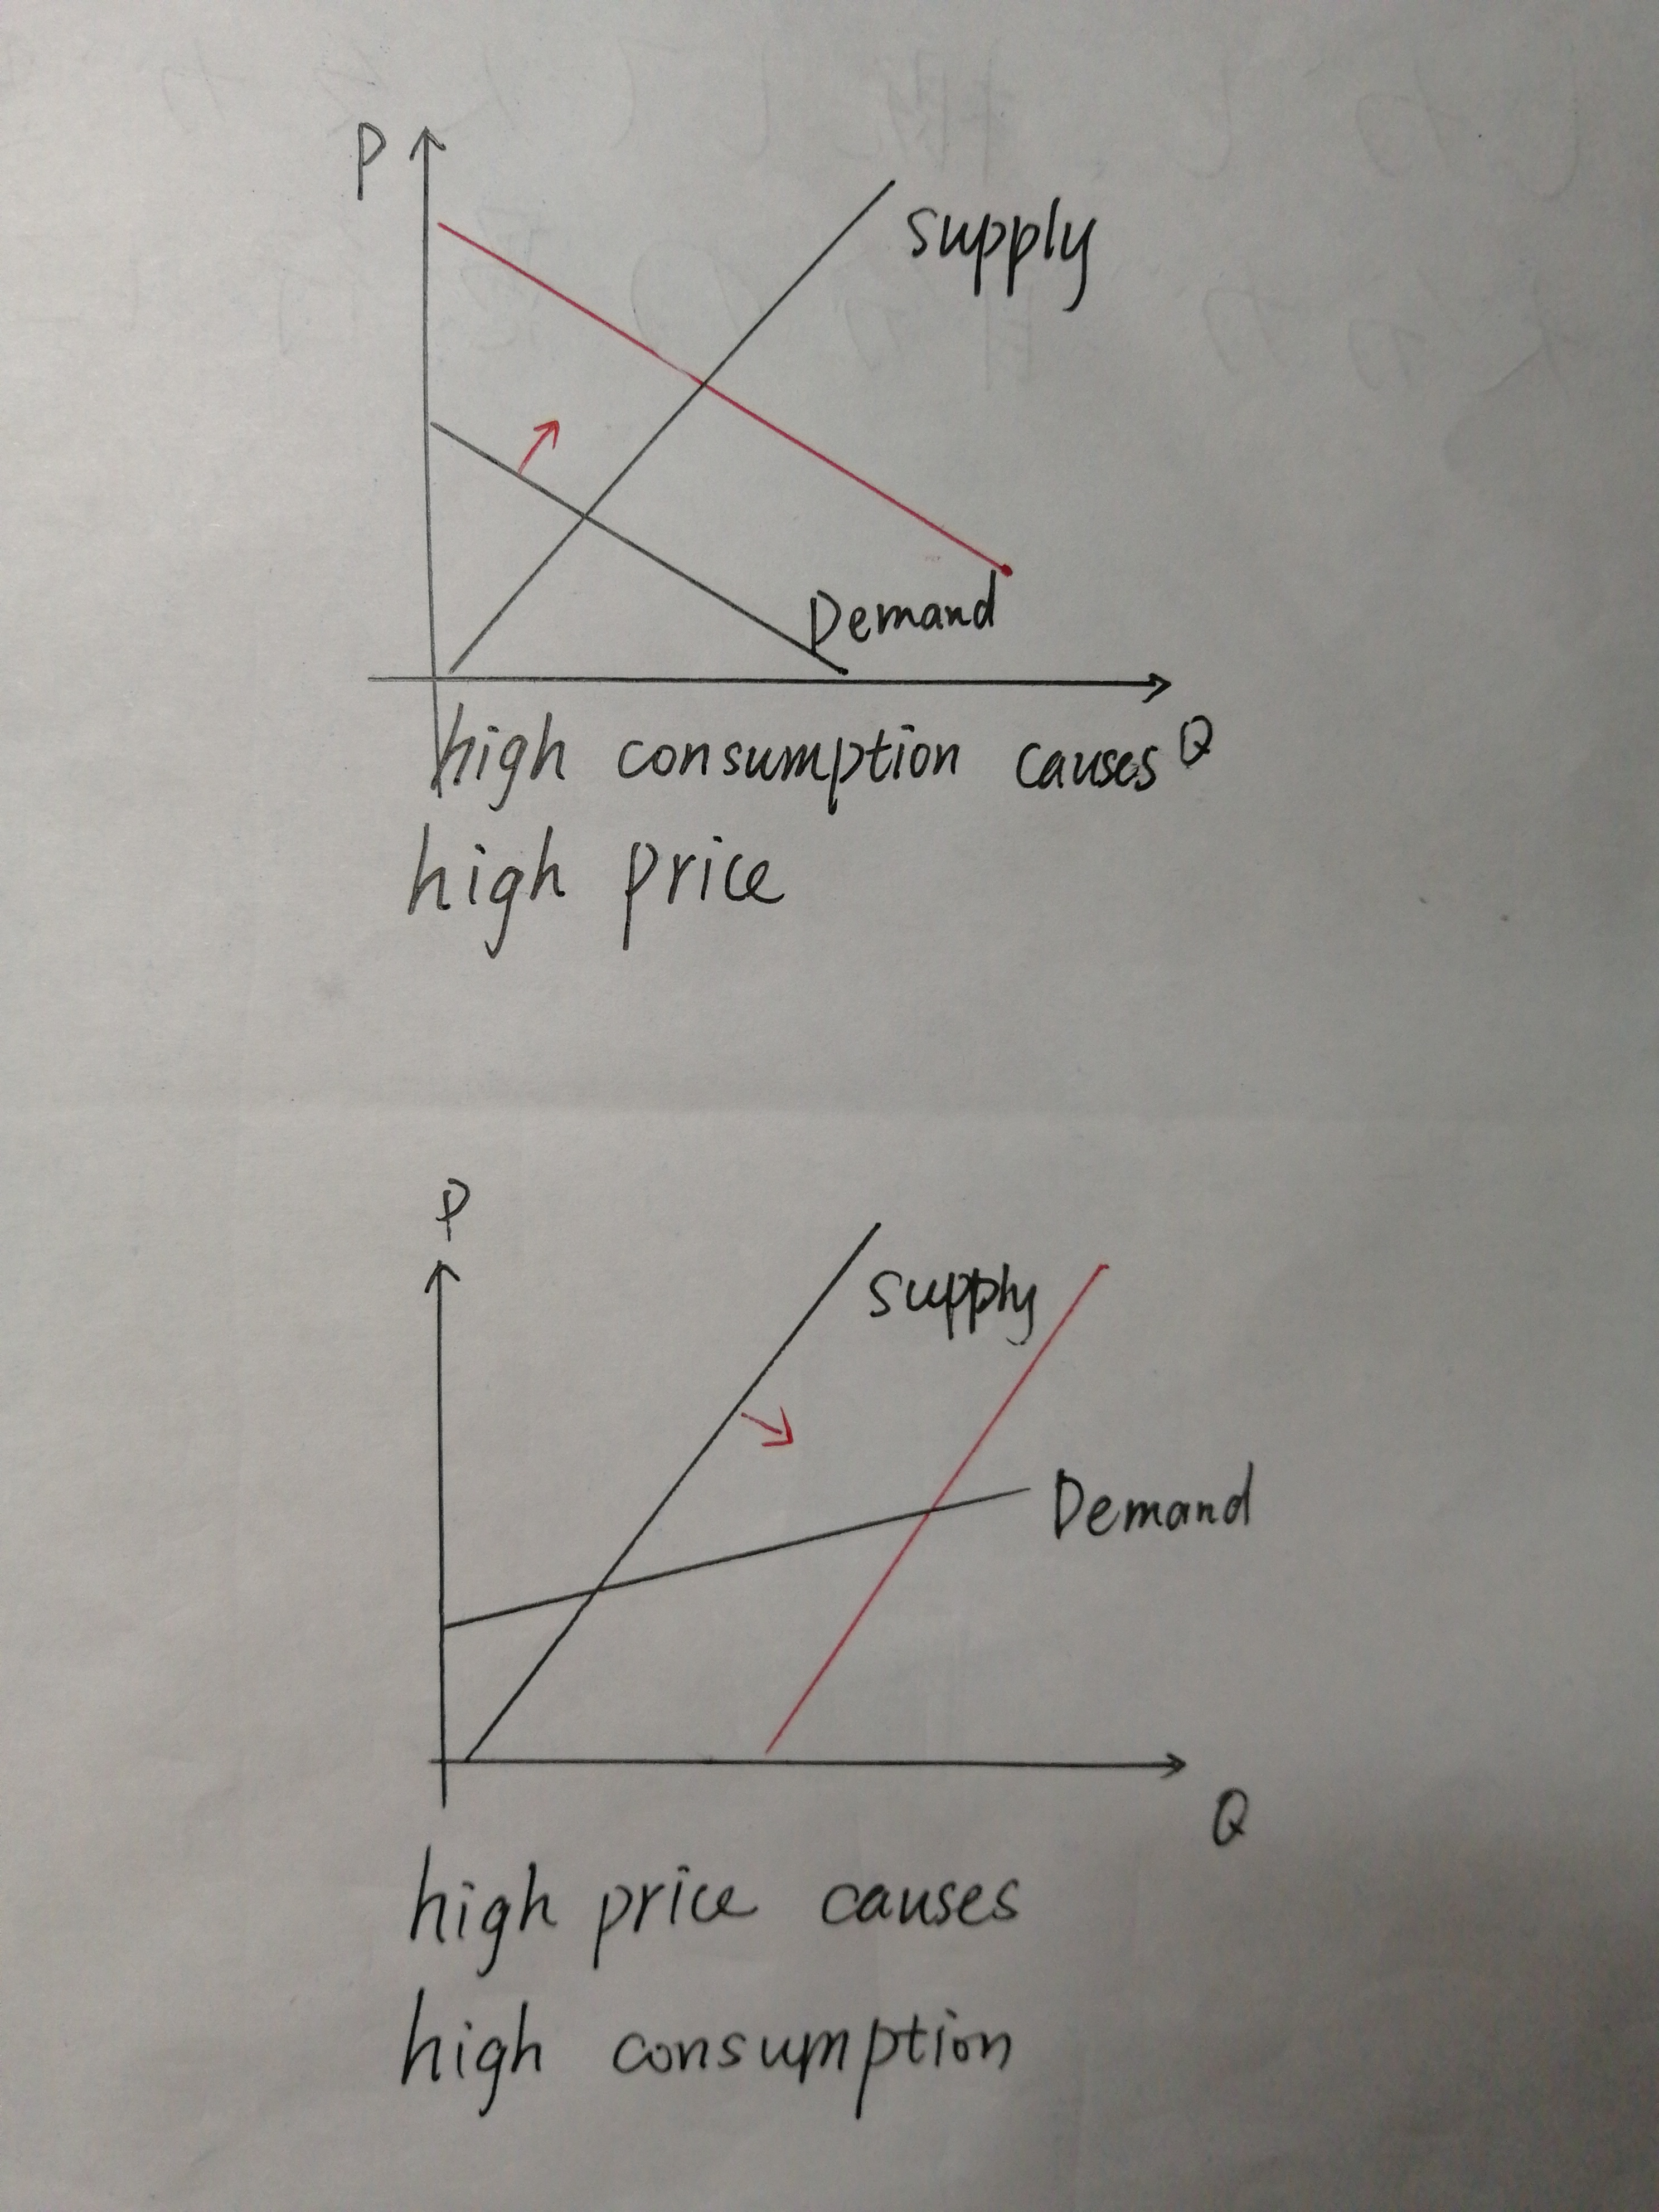 P
supply
Demand
Q
high consumption causes
high price
P
supply
Demand
Q
high price causes
high consumption